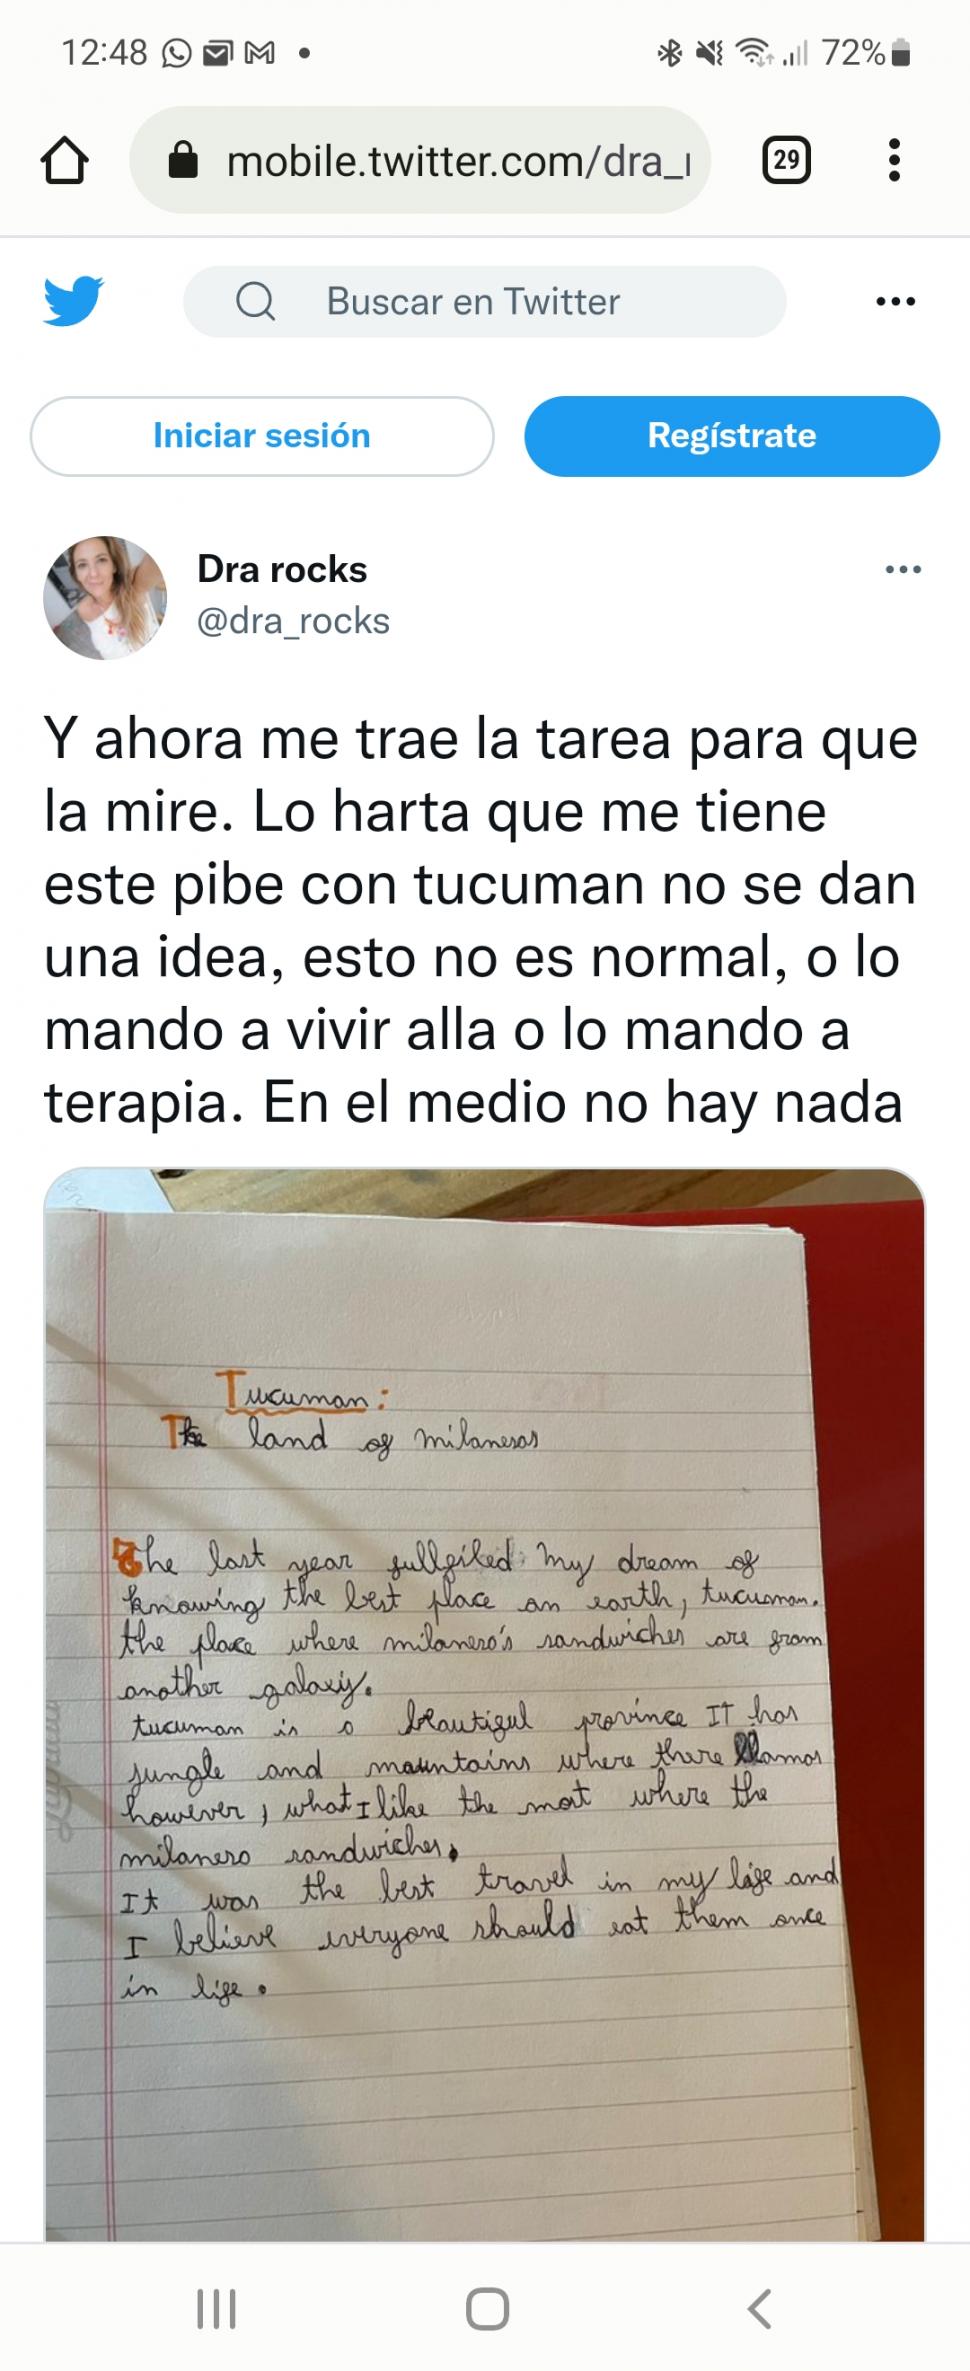 12:48
72%
mobile.twitter.com/dra_
29
Buscar en Twitter
Iniciar sesión
Regístrate
Dra rocks
@dra_rocks
Y ahora me trae la tarea para que
la mire. Lo harta que me tiene
este pibe con tucuman no se dan
una idea, esto no es normal, o lo
mando a vivir alla o lo mando a
terapia. En el medio no hay nada
Tucuman:
The land of milanesas
The last year fullfiled my dream of
knowing the best place on earth, tucuman.
the place where milanesa's sandwiches are from
another galaxy.
tucuman is a beautiful province IT has
jungle and mauntains where there llamas
however, what I like the most where the
milanesa sandwiches.
It was the best travel in my life and
I believe everyone should eat them once
in life.